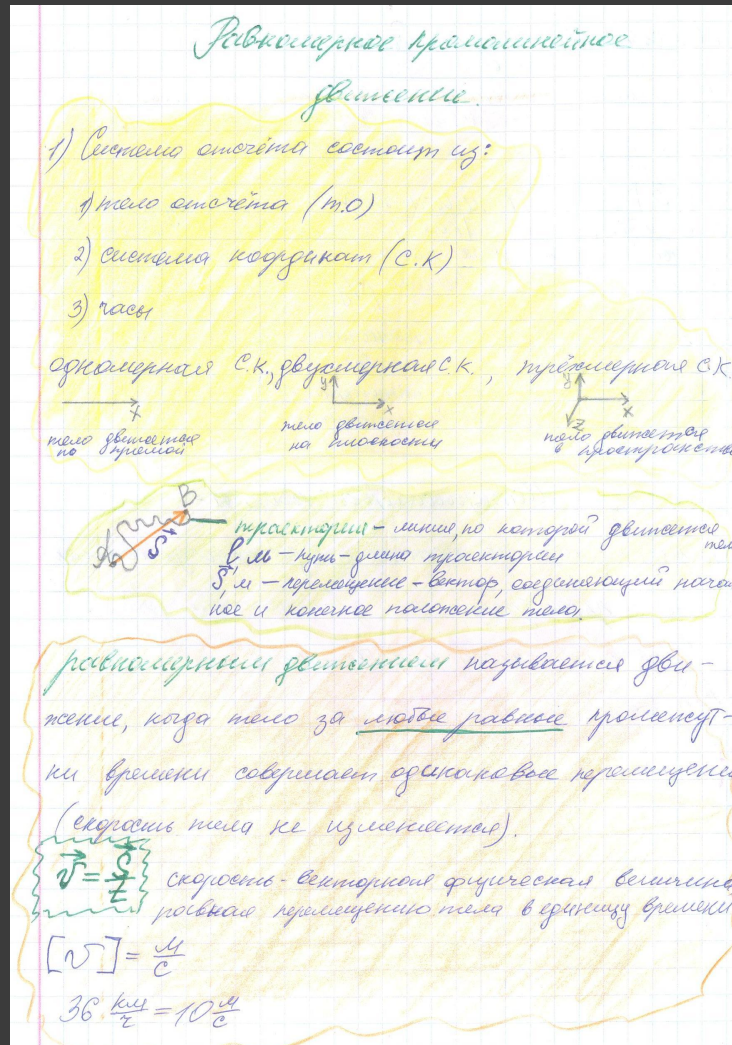 Равномерное прямолинейное
движение.
1) Система отсчёта состоит из:
1) тело отсчёта (т.О)
2) система координат (С.К)
3) часы
одномерная С.К., двухмерная С.К., трёхмерная С.К.
X
y
x
y
x
z
тело движется
по прямой
тело движется
на плоскости
тело движется
в пространстве
A
B
S⃗
траектория – линия, по которой движется
тело
l, м – путь – длина траектории
S⃗, м – перемещение – вектор, соединяющий началь
ное и конечное положение тела.
равномерным движением называется дви-
жение, когда тело за любые равные промежут-
ки времени совершает одинаковые перемещени
(скорость тела не изменяется).
v⃗ = S⃗/t
скорость - векторная физическая величина
равная перемещению тела в единицу времени
[v] = м/с
36 км/ч = 10 м/с